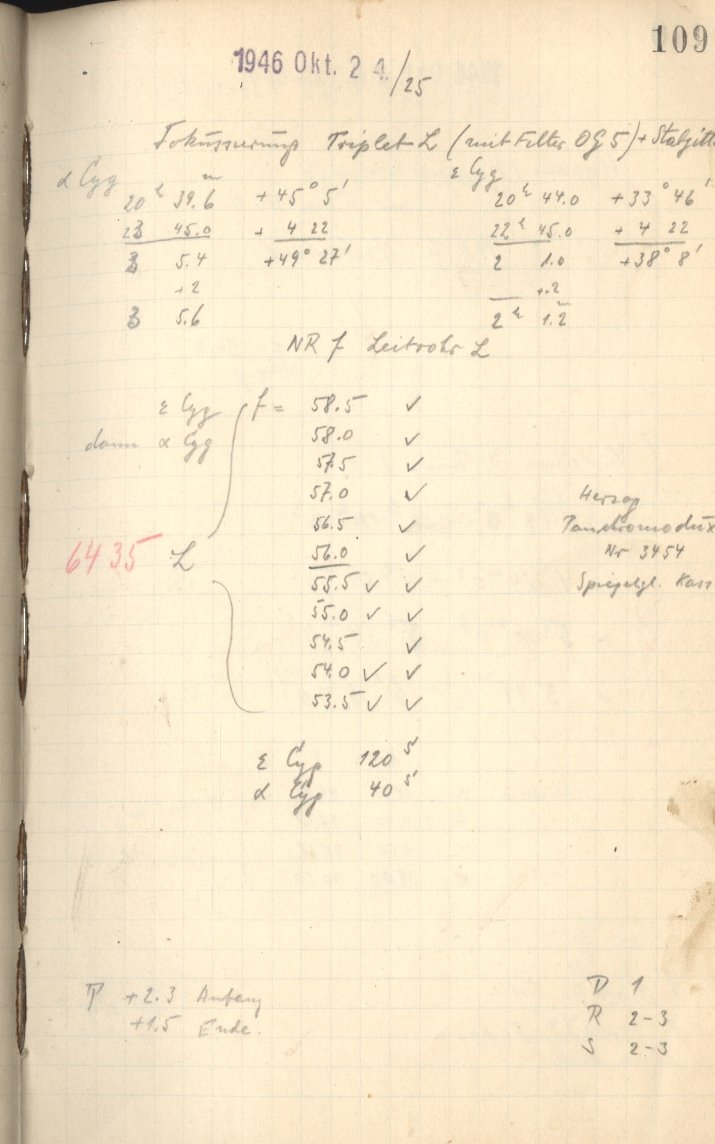 109
1946 Okt. 24./25
Fokussierung Triplet L (mit Filter OG5) + Stabgitt
α Cyg ε Cyg
20 h 39.6 m +45° 5' 20 h 44.0 +33° 46'
23 45.0 + 4 22 22 h 45.0 + 4 22
3 5.4 +49° 27' 2 1.0 +38° 8'
+2 +.2
3 5.6 2 h 1.2 m
NR f Leitrohr L
ε Cyg f = 58.5 ✓
dann α Cyg 58.0 ✓
57.5 ✓
57.0 ✓ Herzog
56.5 ✓ Panchromodux
6435 L 56.0 ✓ Nr 3454
55.5 ✓ ✓ Spiegelgl. Kass
55.0 ✓ ✓
54.5 ✓
54.0 ✓ ✓
53.5 ✓ ✓
ε Cyg 120 s
α Cyg 40 s
T +2.3 Anfang D 1
+1.5 Ende. R 2-3
S 2-3